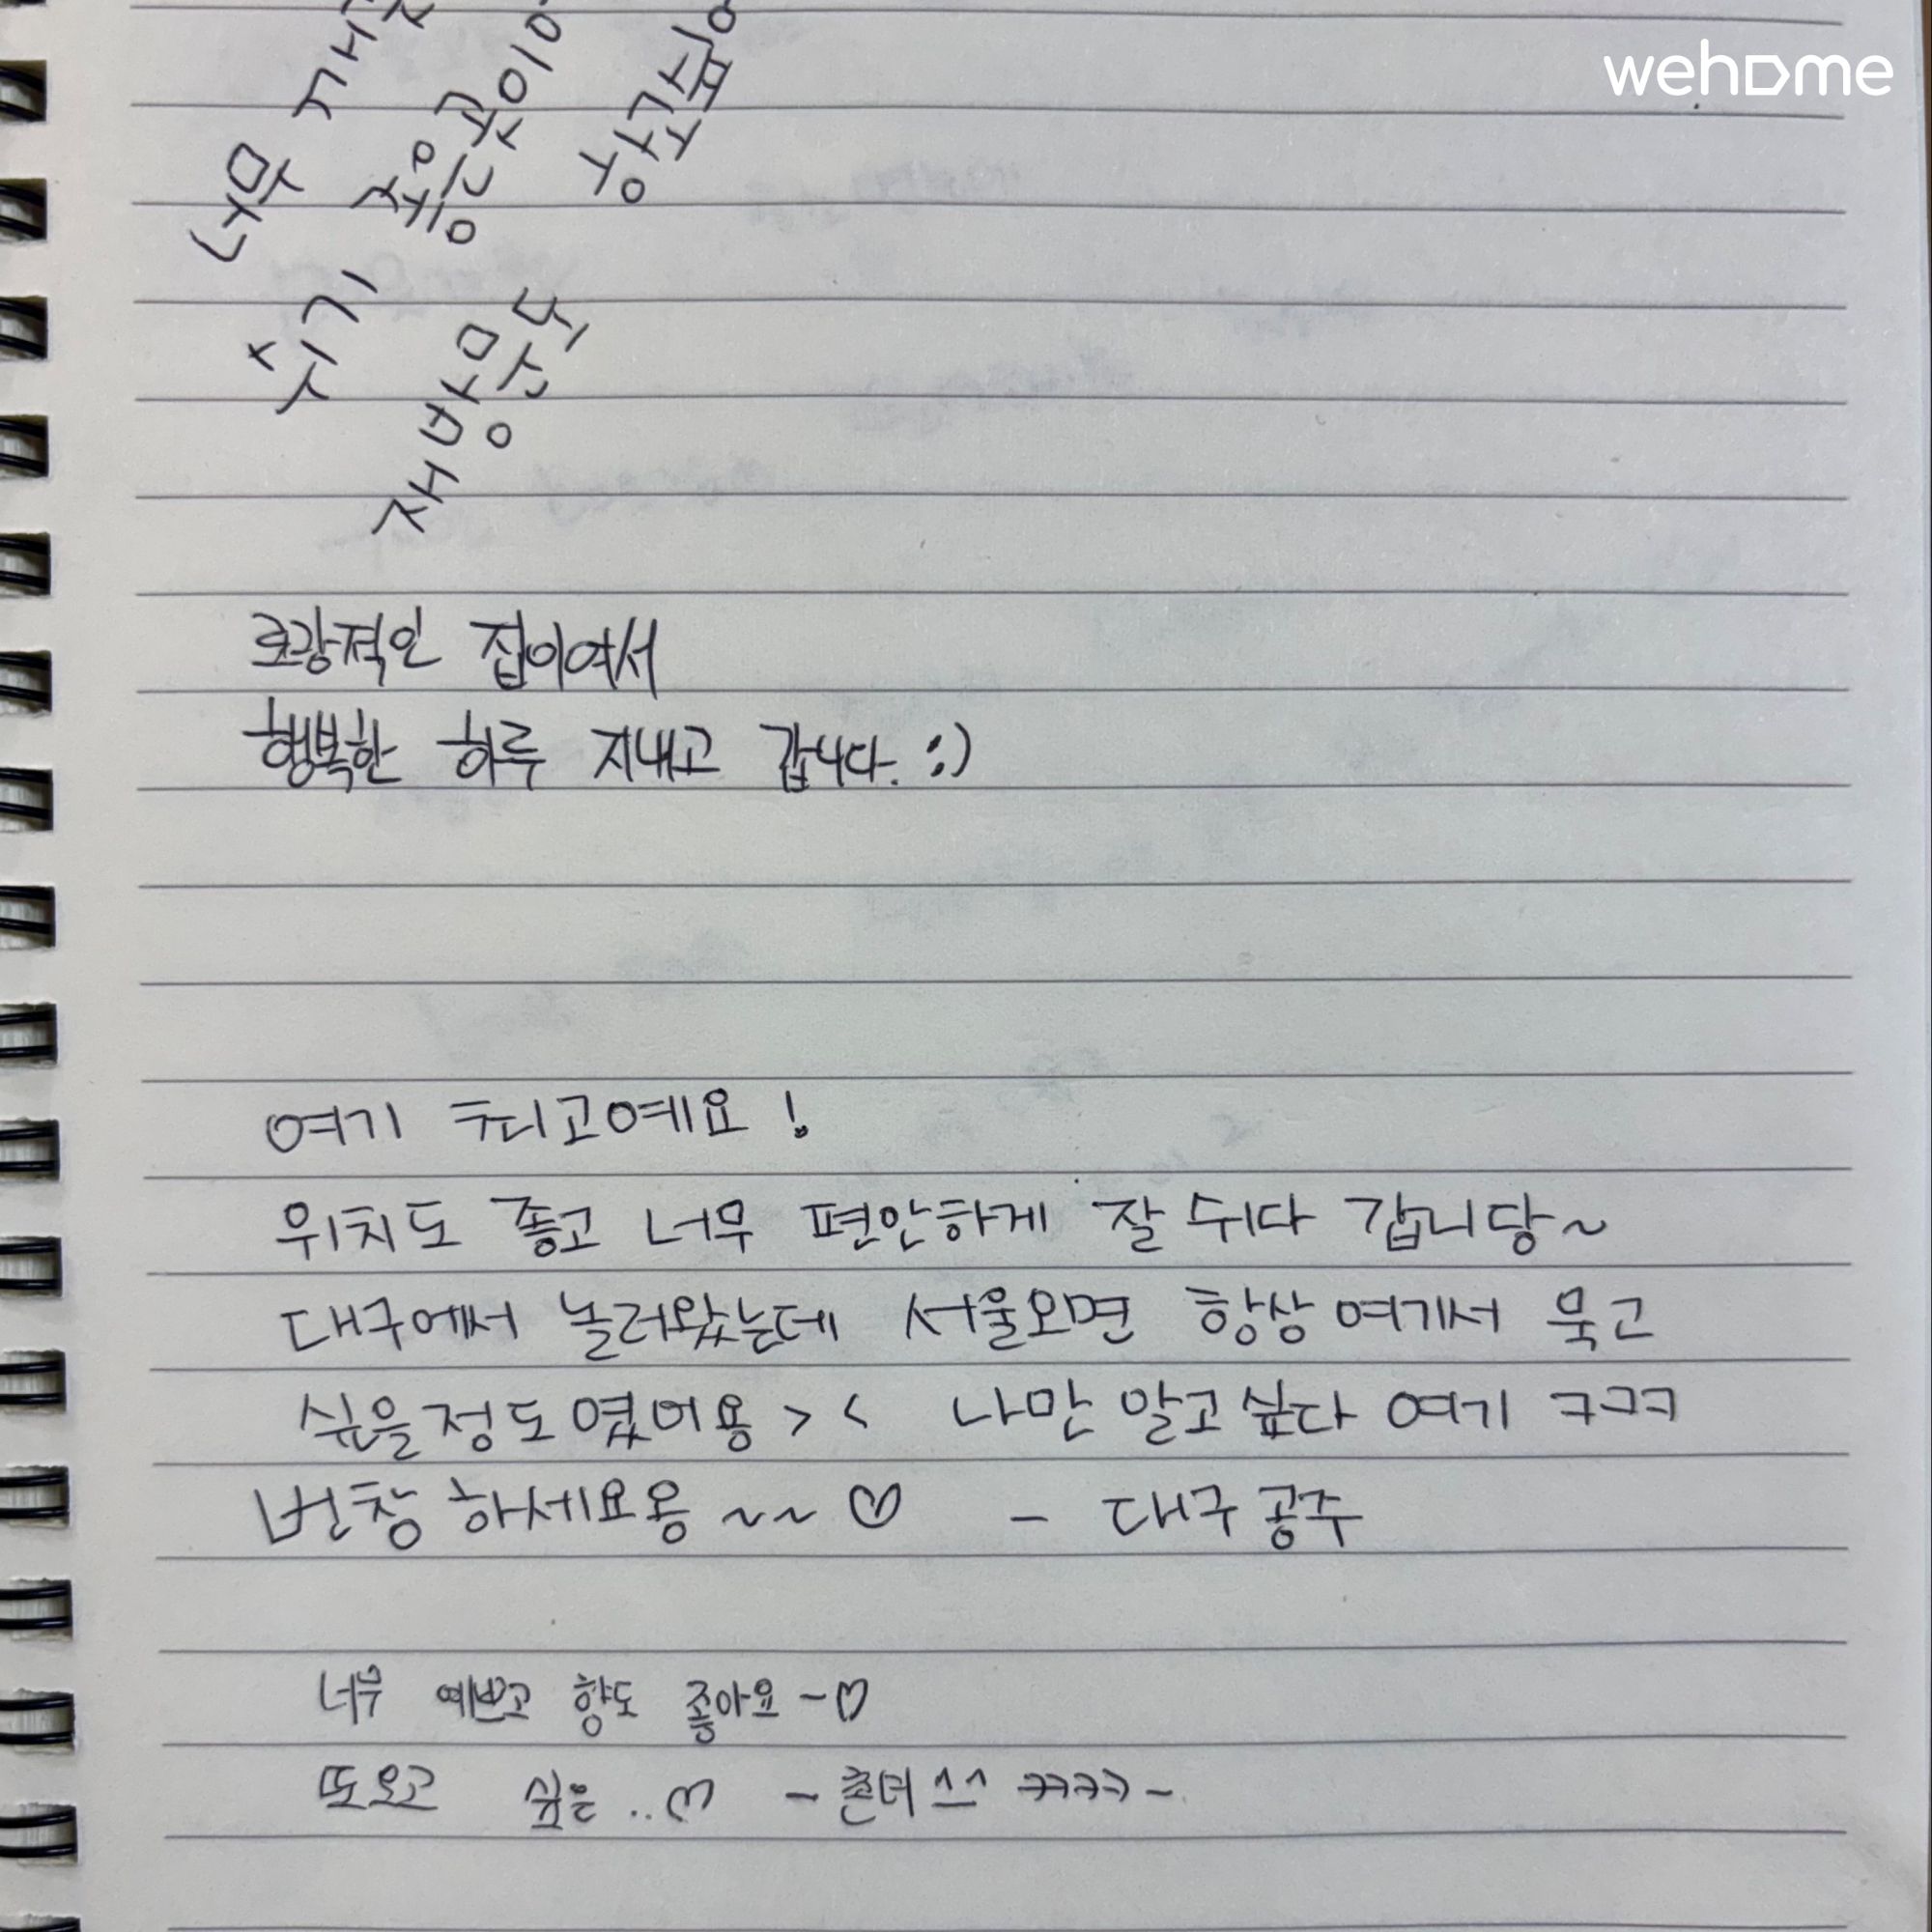 wehome
너무
좋은 공이
싶어
자기
재방문
로광적인 집이여서
행복한 하루 지내고 갑니다. :)
여기 최고예요!
위치도 좋고 너무 편안하게 잘 쉬다 갑니당~
대구에서 놀러왔는데 서울오면 항상 여기서 묵고
싶을정도 였어용 > < 나만 알고싶다 여기 ㅋㅋㅋ
번창 하세요용 ~~ ♡ - 대구공주
너무 예쁘고 향도 좋아요 ~♡
또오고 싶은 ..♡ - 쵼더 ^^ ㅋㅋㅋㅋ -